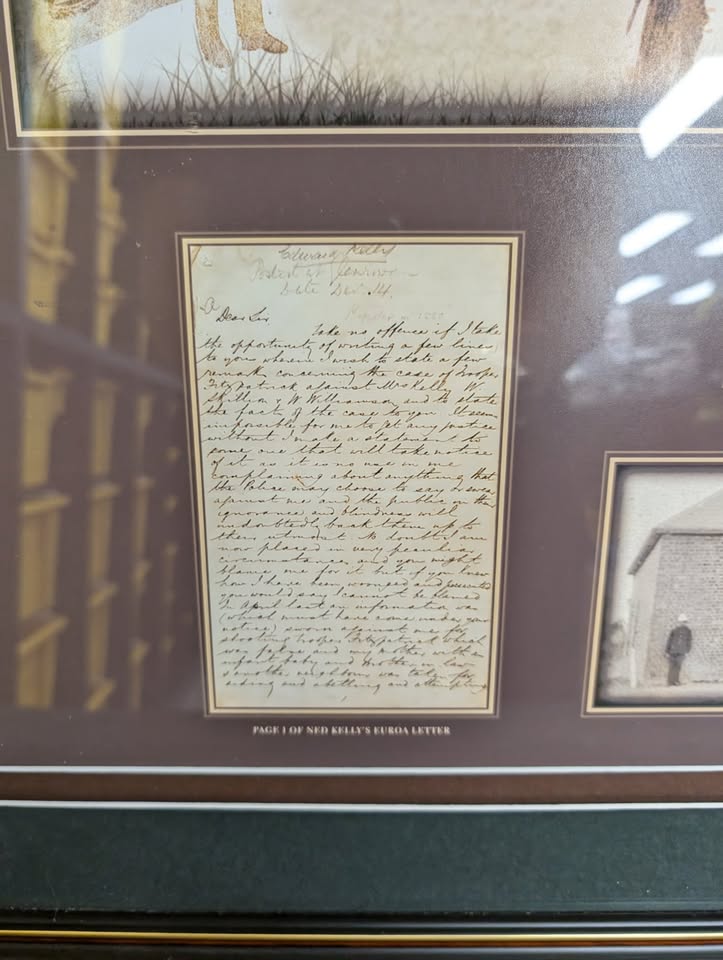 Edward Kelly
Date Dec. 14.
Dear Sir,
Take no offence if I take
the opportunity of writing a few lines
to you wherein I wish to state a few
remarks concerning the case of Trooper
Fitzpatrick against Mrs Kelly W.
Skillion & W Williamson and to state
the facts of the case to you. It seems
impossible for me to get any justice
without I make a statement to
some one that will take notice
of it as it is no use in me
complaining about anything that
the Police may choose to say or swear
against me and the public in their
ignorance and blindness will
undoubtedly back them up to
their utmost. No doubt I am
now placed in very peculiar
circumstances and you might
blame me for it but if you knew
how I have been wronged and persecuted
you would say I cannot be blamed
In April last an information was
(which must have come under your
notice) sworn against me for
shooting trooper Fitzpatrick which
was false and my mother with an
infant baby and brother in law
& another neighbour was taken for
aiding and abetting and attempting
PAGE 1 OF NED KELLY'S EUROA LETTER